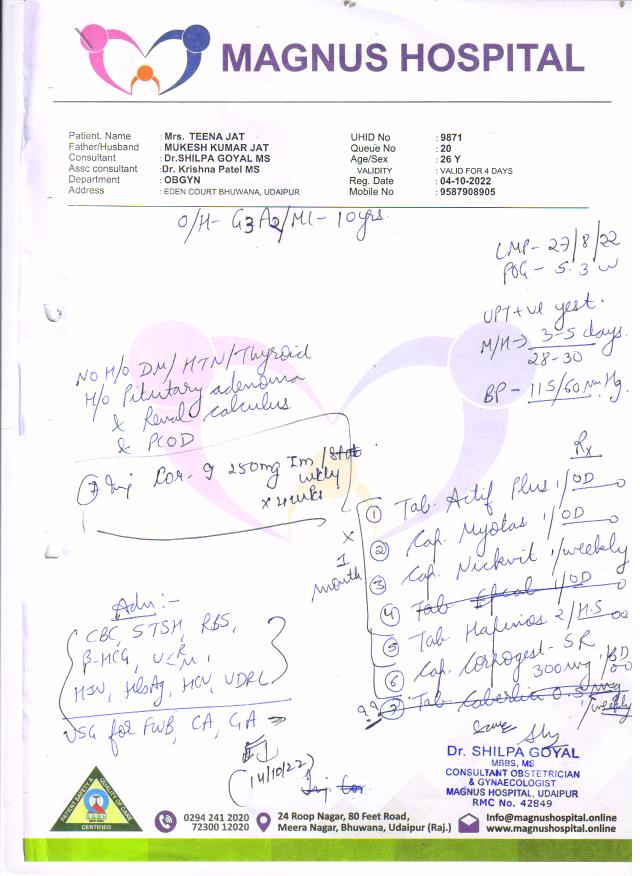 MAGNUS HOSPITAL
Patient. Name : Mrs. TEENA JAT
Father/Husband : MUKESH KUMAR JAT
Consultant : Dr.SHILPA GOYAL MS
Assc consultant : Dr. Krishna Patel MS
Department : OBGYN
Address : EDEN COURT BHUWANA, UDAIPUR
UHID No : 9871
Queue No : 20
Age/Sex : 26 Y
VALIDITY : VALID FOR 4 DAYS
Reg. Date : 04-10-2022
Mobile No : 9587908905
O/H- G3A2/ML- 10yrs.
LMP- 27/8/22
POG- 5.3 w
UPT+ve yest.
M/H-> 3-5 days.
28-30
BP- 115/60 mmHg
NO H/O DM/HTN/Thyroid
H/O Pituitary adenoma
& Renal calculus
& PCOD
Inj Cor. 9 250mg Im/Stat
wkly
x 4 wks
Rx
x 1 month
1 Tab. Actif Plus 1/OD
2 Cap. Myotas 1/OD
3 Cap. Nickvit 1/weekly
4 Tab 1/OD
5 Tab. 2/H.S
6 Cap. Corhogest-SR
300mg 1/BD
7 Tab. Caberlin 0.5mg
1/weekly
Adv:-
CBC, STSH, RBS,
β-HCG,
HIV, HbsAg, HCV, VDRL
USG for FWB, CA, GA
14/10/22
Inj Cor
Dr. SHILPA GOYAL
MBBS, MS
CONSULTANT OBSTETRICIAN
& GYNAECOLOGIST
MAGNUS HOSPITAL, UDAIPUR
RMC No. 42849
PATIENT SAFETY & QUALITY OF CARE
NABH
CERTIFIED
0294 241 2020
72300 12020
24 Roop Nagar, 80 Feet Road,
Meera Nagar, Bhuwana, Udaipur (Raj.)
Info@magnushospital.online
www.magnushospital.online